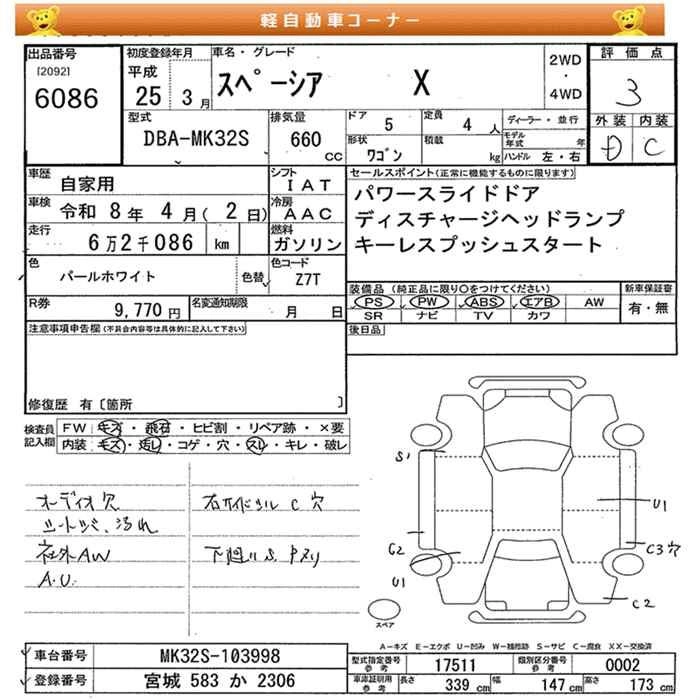 軽自動車コーナー
出品番号
[2092]
6086
初度登録年月
平成
25 3月
車名・グレード
スペーシア X
2WD
・
4WD
評価点
3
外装 内装
D C
型式
DBA-MK32S
排気量
660
CC
ドア
5
定員
4人
形状
ワゴン
積載
kg
ディーラー・並行
モデル年式 年
ハンドル 左・右
車歴
自家用
シフト
IAT
車検
令和 8年 4月(2日)
冷房
AAC
走行
6万2千086 km
燃料
ガソリン
セールスポイント(正常に機能するものに限ります)
パワースライドドア
ディスチャージヘッドランプ
キーレスプッシュスタート
色
パールホワイト
色替
色コード
Z7T
装備品 (純正品に限り○をつけてください)
PS PW ABS エアB AW
SR ナビ TV カワ
新車保証書
有・無
R券
9,770 円
名変通知期限
月 日
後日品
注意事項申告欄(不具合内容等は具体的に記入して下さい)
修復歴 有〔箇所 〕
検査員記入欄
FW キズ・飛石・ヒビ割・リペア跡・×要
内装 キズ・汚レ・コゲ・穴・スレ・キレ・破レ
オーディオ穴
シートシミ、汚れ
社外AW
A.U.
右サイドシル C 穴
下廻り S. Pヌリ
S1
G2
U1
U1
C3穴
C2
スペア
A-キズ E-エクボ U-凹み W-補修跡 S-サビ C-腐食 XX-交換済
車台番号
MK32S-103998
登録番号
宮城 583 か 2306
型式指定番号 参考
17511
類別区分番号 参考
0002
車庫証明用 参考
長さ 339 cm 幅 147 cm 高さ 173 cm